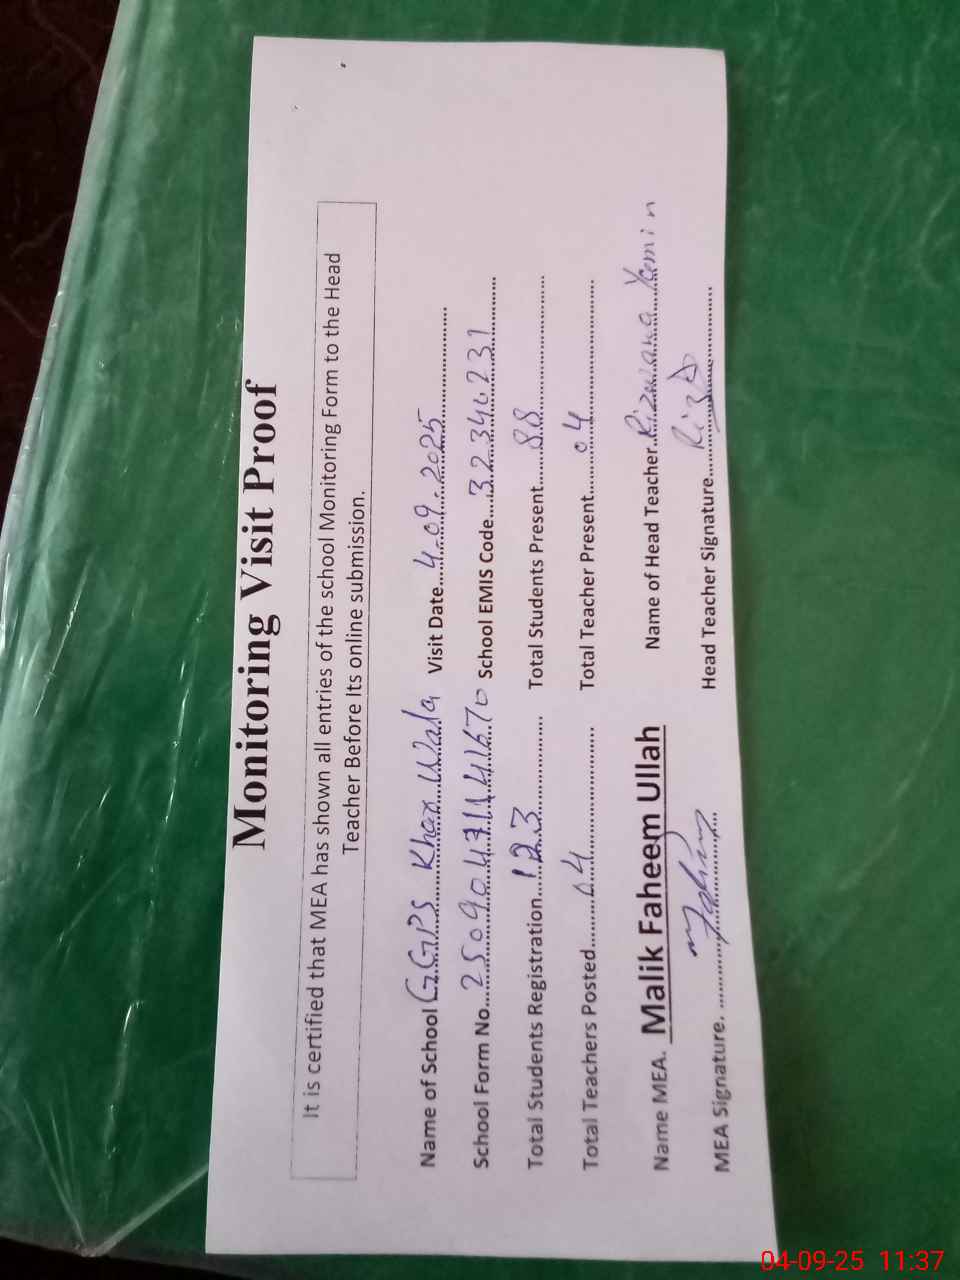 Monitoring Visit Proof
It is certified that MEA has shown all entries of the school Monitoring Form to the Head
Teacher Before Its online submission.
Name of School GGPS Khar Wala Visit Date 4-09-2025
School Form No. School EMIS Code 32340231
Total Students Registration 123 Total Students Present 88
Total Teachers Posted 04 Total Teacher Present 04
Name MEA. Malik Faheem Ullah Name of Head Teacher Rizwana Yemin
MEA Signature. Head Teacher Signature
04-09-25 11:37